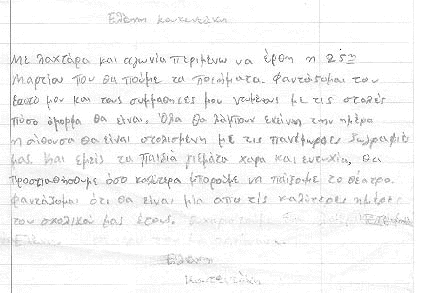 Ελένη
Με λαχτάρα και αγωνία περιμένω να έρθη η 25η
Μαρτίου που θα πούμε τα ποιήματα. Φαντάζομαι τον
εαυτό μου και τους συμμαθητές μου ντυμένους με τις στολές
πόσο όμορφα θα είναι. Όλα θα λάμπουν εκείνη την ημέρα
η αίθουσα θα είναι στολισμένη με τις πανέμορφες ζωγραφιές
μας και εμείς τα παιδιά γεμάτα χαρά και ευτυχία, θα
προσπαθήσουμε όσο καλύτερα μπορούμε να παίξουμε το θέατρο.
Φαντάζομαι ότι θα είναι μία από τις καλύτερες ημέρες
του σχολικού μας έτους.
Ελένη